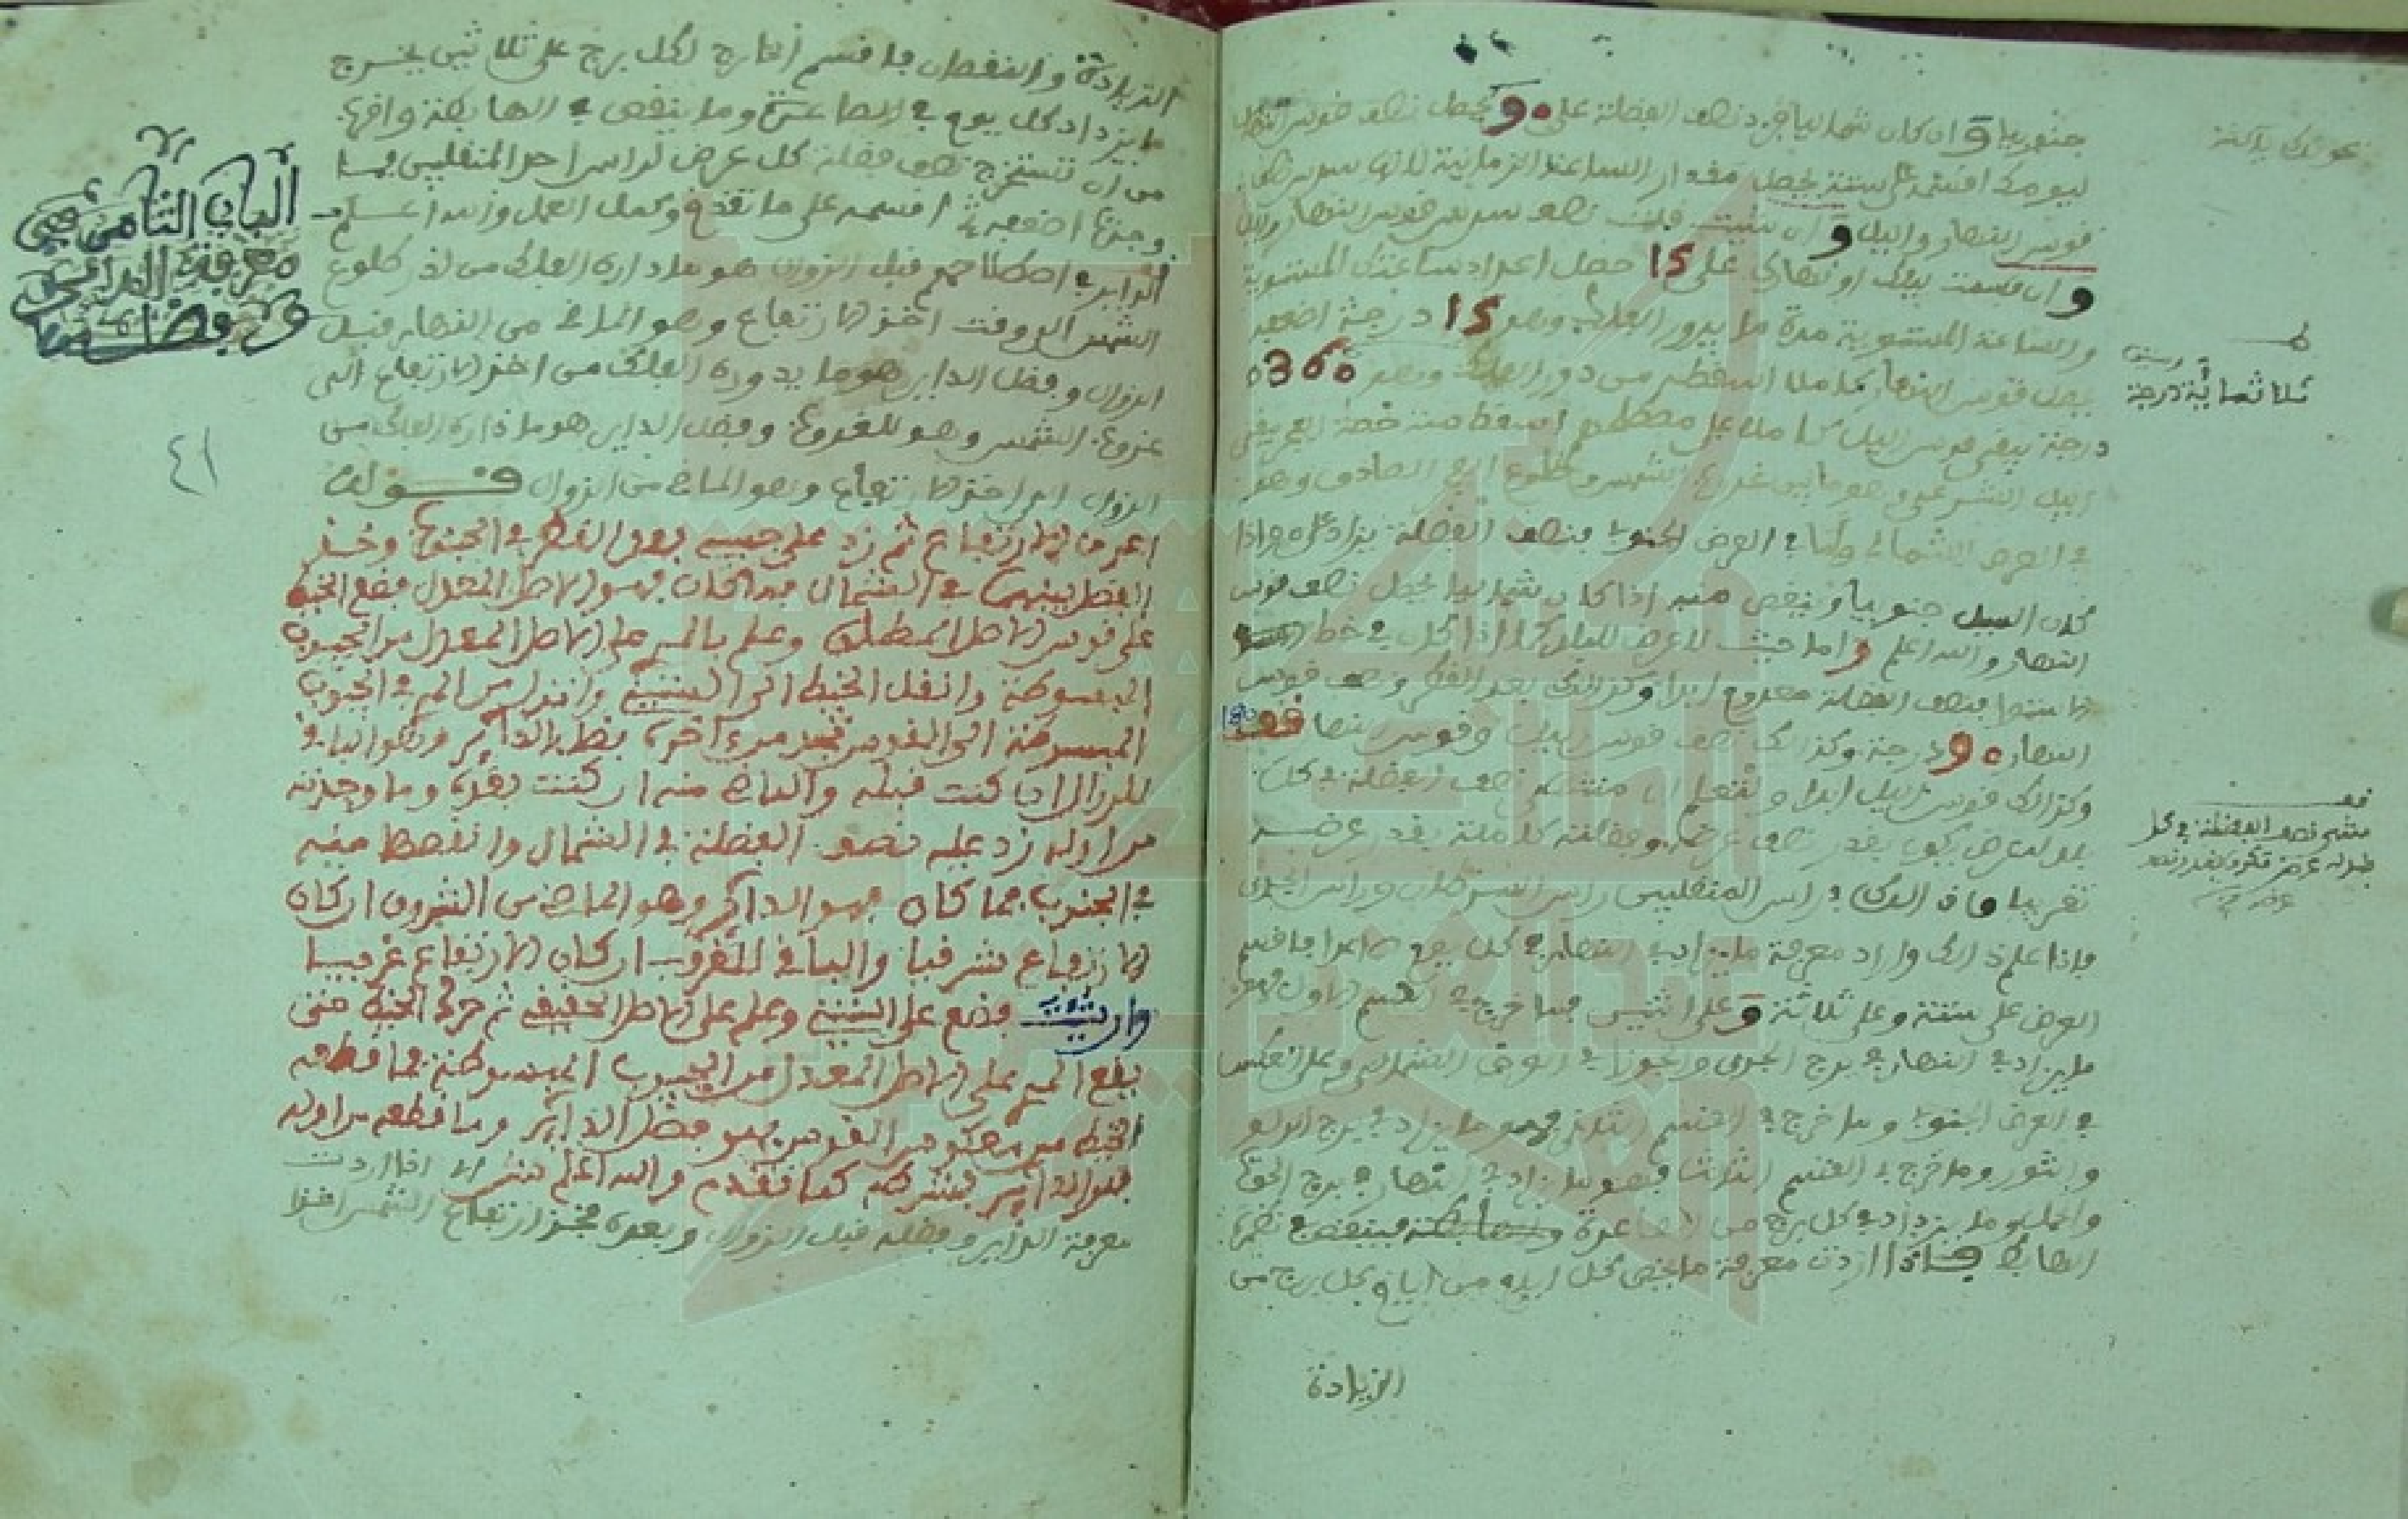 جنوبيا وان كان شماليا فزد نصف الفضلة على 90 يحصل نصف قوس النهار
ليومك اقسمه على ستة يحصل مقدار الساعة الزمانية لانها سدس نصف
قوس النهار والليل وان شئت فقلت نصف سدس قوس النهار والليل
وان قسمت ليلك او نهارك على 15 حصل اعداد ساعتك المستوية
والساعة المستوية مدة ما يدور الفلك وهو 15 درجة
قوس النهار كاملا اسقطه من دور الفلك وهو 360
درجة يبقى قوس الليل كاملا اسقط منه حصة الفجر يبقى
الليل الشرعي وهو ما بين غروب الشمس وطلوع الفجر الصادق وهو
في العرض الشمالي واما في العرض الجنوبي فنصف الفضلة يزاد اذا
كان الميل جنوبيا وينقص منه اذا كان شماليا يحصل نصف قوس
النهار والله اعلم واما حيث لا عرض للبلد كما اذا كان في خط
الاستوا فنصف الفضلة معدوم ابدا وكذلك بعد القطر ونصف قوس
النهار 90 درجة وكذلك نصف قوس الليل وقوس النهار قف 180
وكذلك قوس الليل ابدا ولتعلم ان منتهى نصف الفضلة في كل
بلد له عرض يكون بقدر نصف عرضه وفضلته كاملة بقدر عرضه
تقريبا وذلك في راس المنقلبين راس السرطان وراس الجدي
فاذا علم ذلك واراد معرفة ما يزاد في النهار في كل يوم فاقسم
العرض على ستة وعلى ثلاثة وعلى اثنين فما خرج في القسم الاول فهو
ما يزاد في النهار في برج الجدي والجوزا في العرض الشمالي وعلى العكس
في العرض الجنوبي وما خرج في القسم الثاني فهو ما يزاد في برج الدلو
والثور وما خرج في القسم الثالث فهو ما يزاد في النهار في برج الحوت
والحمل وما يزداد في كل برج من الصاعدة فينقص في نظيره
الهابط فاذا اردت معرفة ما يخص كل يوم من ايام كل برج من
الزيادة
ثلاثمائة وستين درجة
قف
منتهى نصف الفضلة في كل
بلد له عرض يكون بقدر نصف
عرضه
الزيادة والنقصان فاقسم الخارج لكل برج على ثلاثين يخرج
ما يزداد كل يوم في الصاعدة وما ينقص في الهابطة
من ان تستخرج نصف فضلة كل عرض لراس احد المنقلبين فما
وجدته اضعفه ثم اقسمه على ما تقدم وكمل العمل والله اعلم
الباب الثامن في
معرفة الدائر
وفضله
الداير في اصطلاحهم قبل الزوال هو ما داره الفلك من لدن طلوع
الشمس الى وقت اخذ الارتفاع وهو الماضي من النهار قبل
الزوال وفضل الداير هو ما يدوره الفلك من اخذ الارتفاع الى
غروب الشمس وهو للغروب وفضل الداير هو ما داره الفلك من
الزوال الى اخذ الارتفاع وهو الماضي من الزوال قوله
٤١
اعرف الارتفاع ثم زد على جيبه بعد القطر في الجنوب وخذ
الفضل بينهما في الشمال فما كان فهو الاصل المعدل فضع الخيط
على قوس الاصل المطلق وعلم بالمري على الاصل المعدل من الجيوب
المبسوطة وانقل الخيط الى الستيني وانزل من المري في الجيوب
المبسوطة الى القوس تجد من اخره فضل الدائر وهو الباقي
للزوال ان كنت قبله والماضي منه ان كنت بعده وما وجدته
من اوله زد عليه نصف الفضلة في الشمال وانقصها منه
في الجنوب فما كان فهو الدائر وهو الماضي من الشروق ان كان
الارتفاع شرقيا والباقي للغروب ان كان الارتفاع غربيا
وان شئت فضع على الستيني وعلم على الاصل الحقيقي ثم حرك الخيط حتى
يقع المري على الاصل المعدل من الجيوب المبسوطة فما قطعه
الخيط من معكوس القوس فهو فضل الدائر وما قطعه من اوله
فالدائر بشرطه كما تقدم والله اعلم اذا اردت
معرفة الداير وفضله قبل الزوال وبعده فخذ ارتفاع الشمس